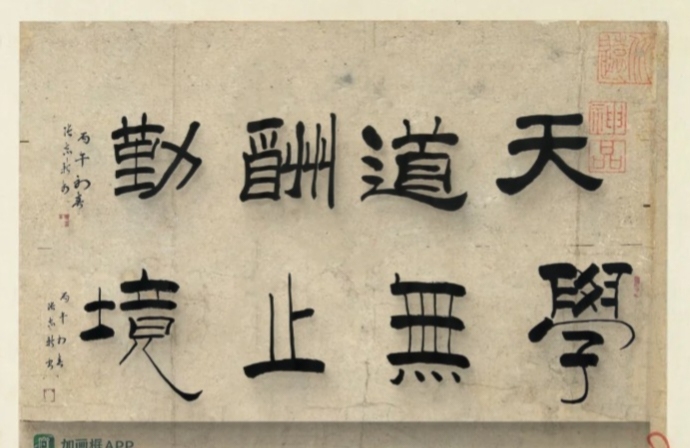 天道酬勤
丙午初春
學無止境
丙午初春
加画框APP
神品